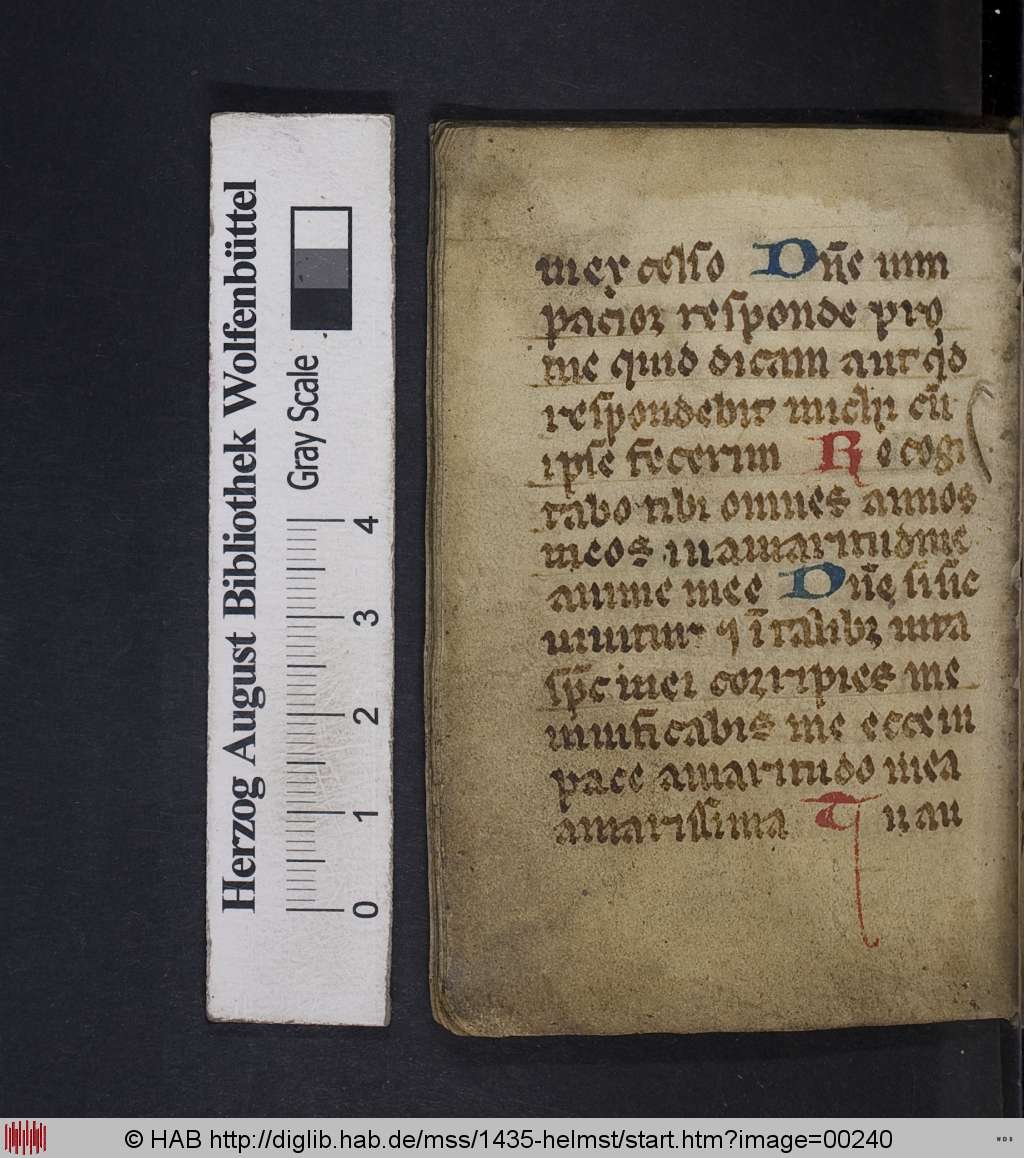 Herzog August Bibliothek Wolfenbüttel
Gray Scale
0 1 2 3 4
in excelso Dn̄e uim
pacior responde pro
me quid dicam aut qͥd
respondebit michi cū
ipse fecerim Recogi
tabo tibi omnes annos
meos in amaritudine
anime mee Dn̄e si sic
uiuitur ⁊ ī talibꝫ uita
sp̄c mei corripies me
uiuifi̅cabis me ecce in
pace amaritudo mea
amarissima Tu au
© HAB http://diglib.hab.de/mss/1435-helmst/start.htm?image=00240